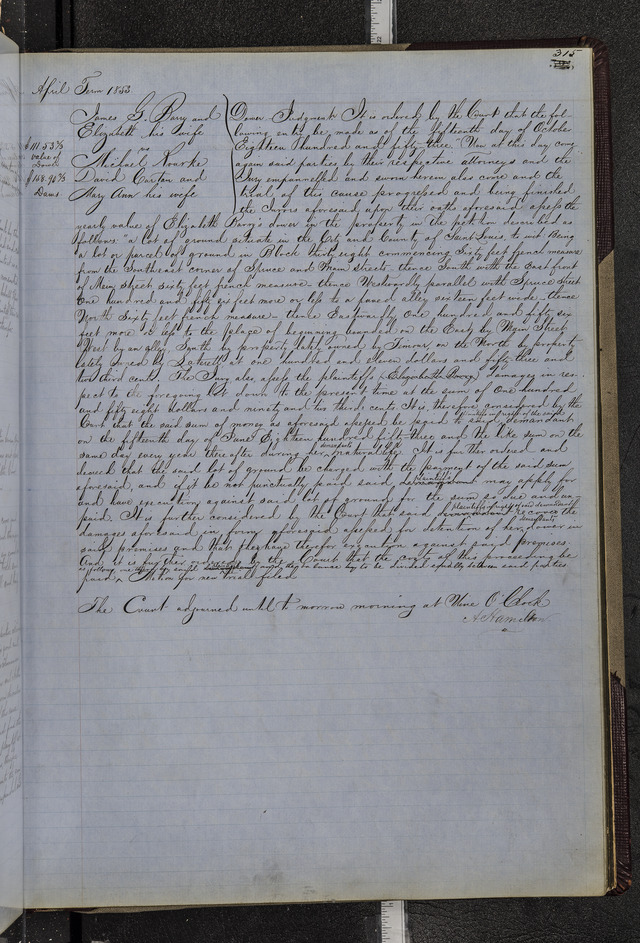 315
April Term 1853
James G. Barry and
Elizabeth his wife
vs
Michael Rourke
David Curtin and
Mary Ann his wife
$111.53⅔
value of
Dower
$158.92⅔
Dams
Dower Judgment It is ordered by the Court that the fol-
lowing entry be made as of the fifteenth day of October
Eighteen hundred and fifty three. Now at this day come
again said parties by their respective attorneys and the
Jury empannelled and sworn herein also come and the
trial of this cause progressed and being finished
the Jurors aforesaid upon their oaths aforesaid assess the
yearly value of Elizabeth Barry's dower in the property in the petition described as
follows: a lot of ground situate in the City and County of Saint Louis, to wit: Being
a lot or parcel of ground in Block thirty eight commencing Sixty feet french measure
from the Southeast corner of Spruce and Main Streets, thence South with the East front
of Main Street sixty feet french measure, thence Westwardly parallel with Spruce Street
One hundred and fifty six feet more or less to a paved alley sixteen feet wide, thence
North sixty feet french measure, thence Eastwardly One hundred and fifty six
feet more or less to the place of beginning bounded on the East by Main Street,
West by an alley, South by property lately owned by on the North by property
lately owned by at one hundred and eleven dollars and fifty three and
two third cents. The Jury also assess the plaintiffs Elizabeth Barry's Damages in res-
pect to the foregoing lot down to the present time at the sum of One hundred
and fifty eight dollars and ninety two third cents It is, therefore considered by the
Court that the said sum of money as aforesaid assessed be paid to said demandant
on the fifteenth day of June Eighteen hundred fifty three and the like sum on the
same day every year there after during her natural life. It is further ordered and
decreed that the said lot of ground be charged with the payment of the said sum
aforesaid, and if it be not punctually paid said may apply for
and have execution against said lot of ground for the sum so due and un-
paid. It is further considered by the Court that said recover the
damages aforesaid in form aforesaid assessed for detention of her dower in
said premises and that they have therefor execution against said premises
And it is further ordered by the Court that the costs of this proceeding be
to be divided equally between said parties
Motion for new trial filed.
The Court adjourned until to morrow morning at Nine O'Clock
A Hamilton